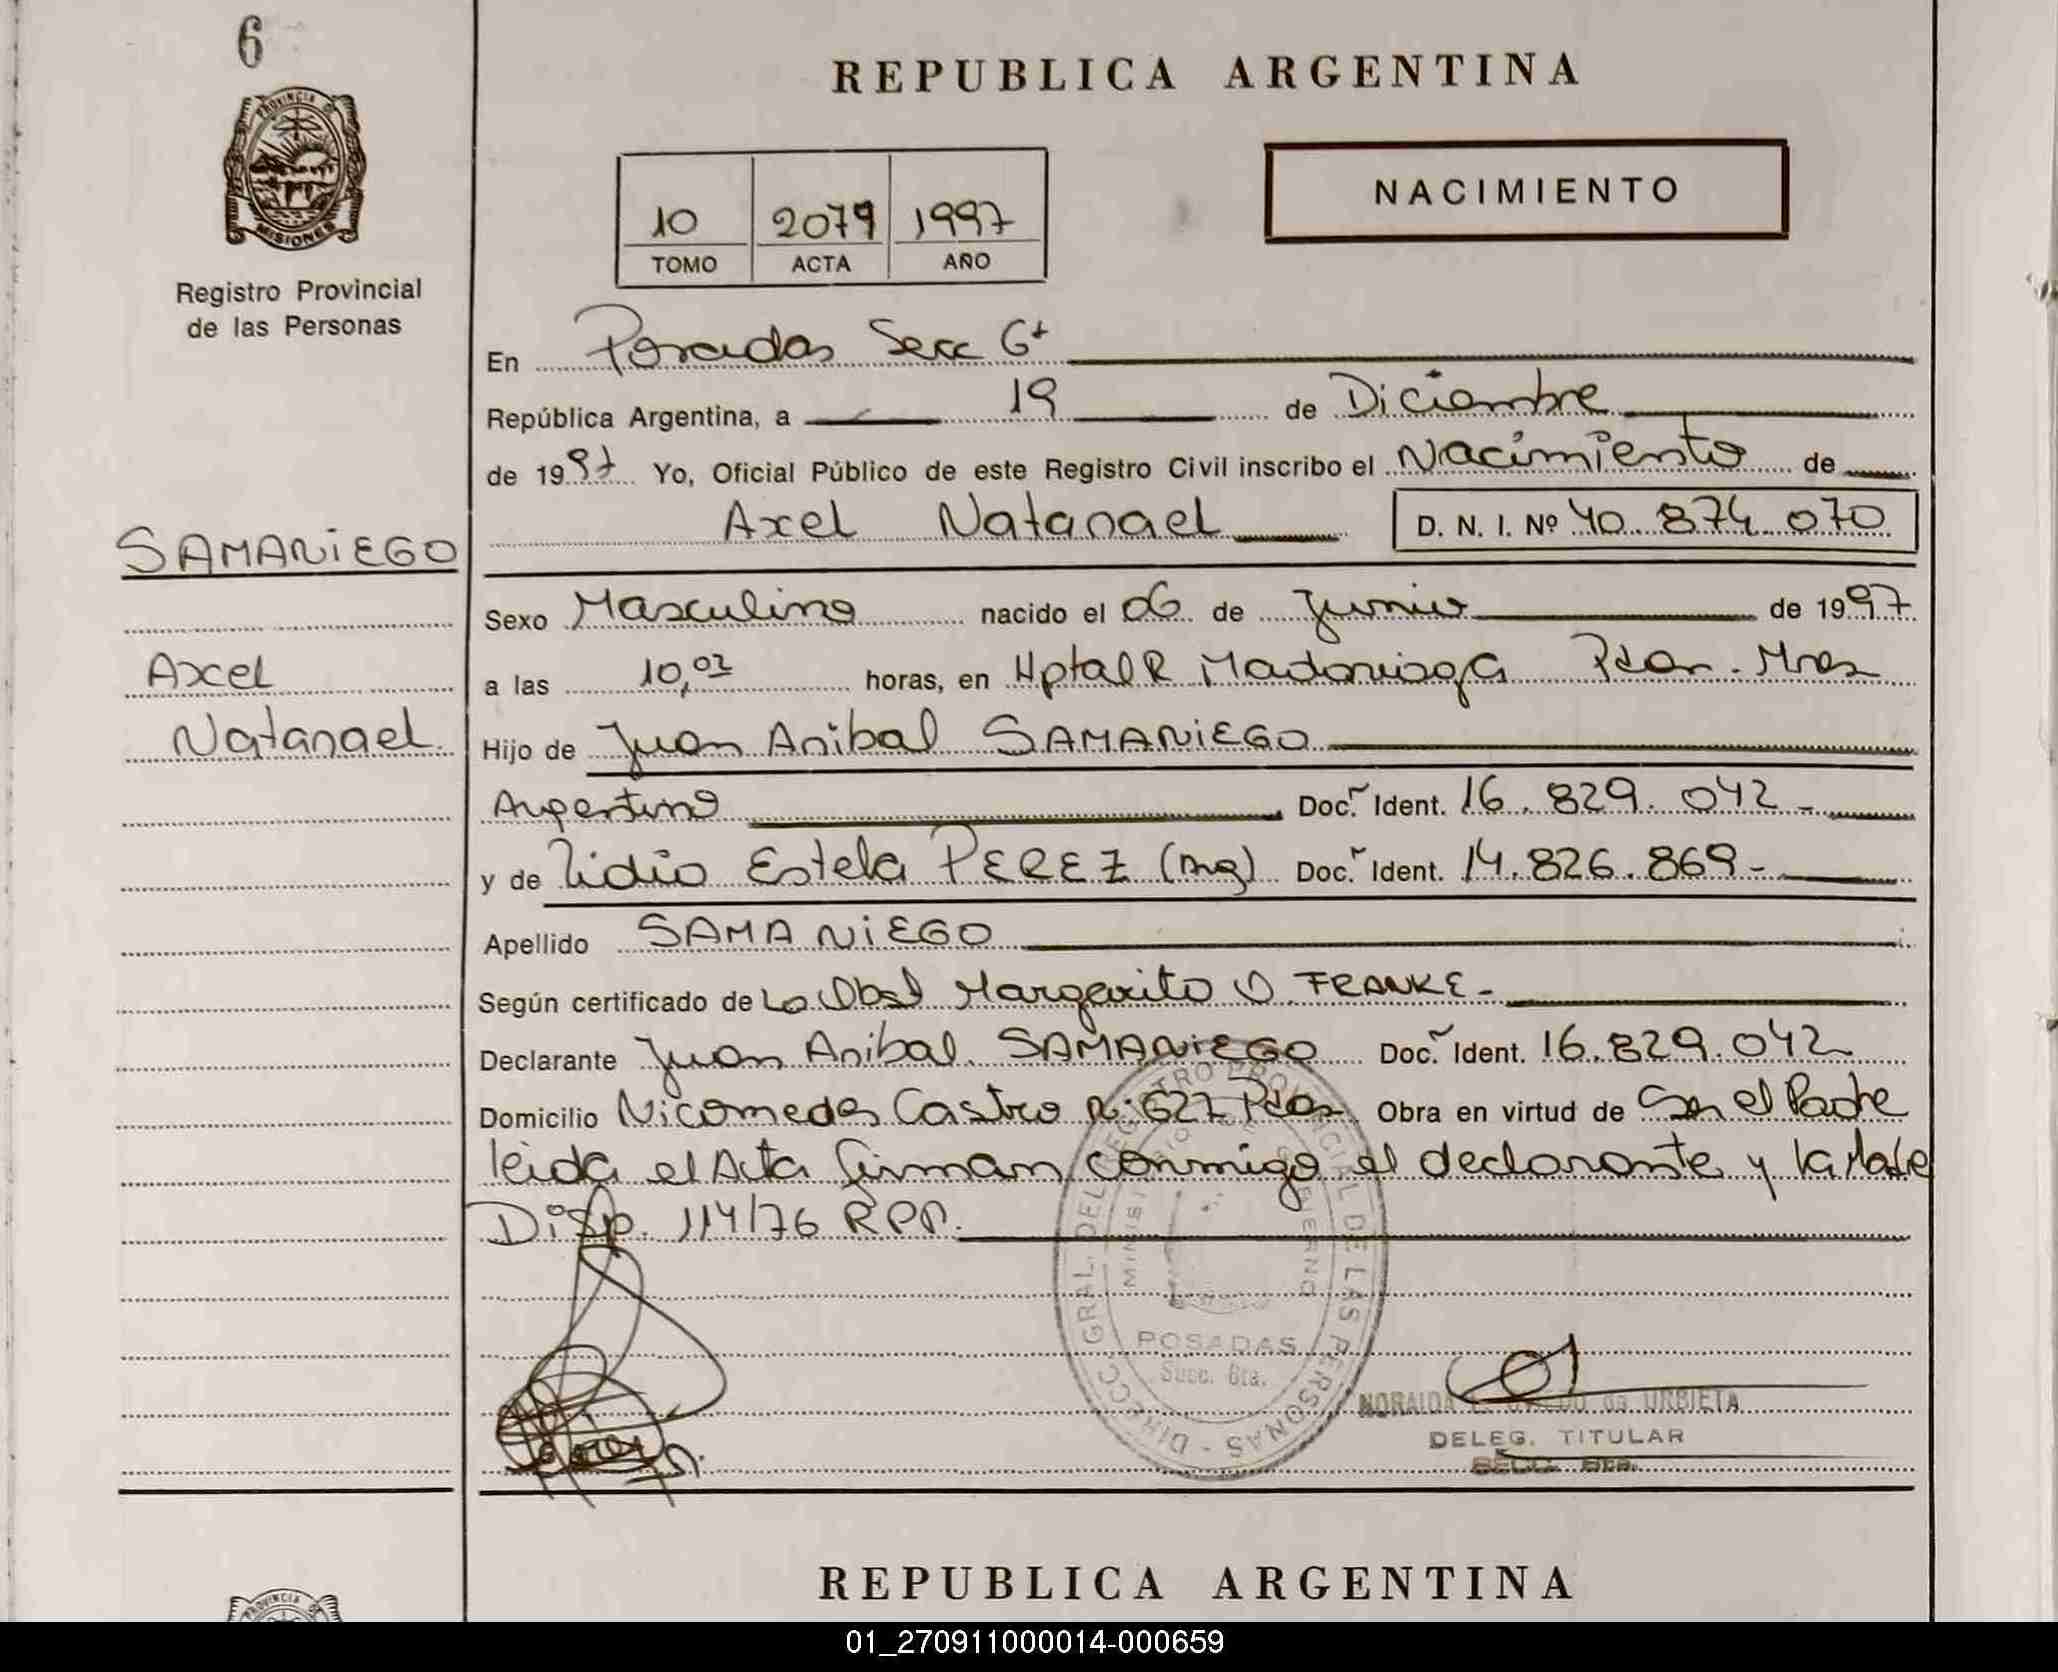 6
REPUBLICA ARGENTINA
PROVINCIA DE
MISIONES
Registro Provincial
de las Personas
NACIMIENTO
10 2079 1997
TOMO ACTA AÑO
En Posadas Secc 6ª
República Argentina, a 19 de Diciembre
de 1997 Yo, Oficial Público de este Registro Civil inscribo el Nacimiento de
Axel Natanael D. N. I. Nº 40.874.070
SAMANIEGO
Axel
Natanael
Sexo Masculino nacido el 06 de Junio de 1997
a las 10,02 horas, en Hptal R Madariaga Pdas. Mnes
Hijo de Juan Anibal SAMANIEGO
Argentino Doc. Ident. 16.829.042-
y de Lidia Estela PEREZ (Arg) Doc. Ident. 14.826.869-
Apellido SAMANIEGO
Según certificado de La Obst Margarita O. FRANKE-
Declarante Juan Anibal SAMANIEGO Doc. Ident. 16.829.042
Domicilio Nicomedes Castro Nº 627 Pdas Obra en virtud de Ser el Padre
leida el Acta firman conmigo el declarante y la Madre
Disp. 114/76 RPP.
DIRECC. GRAL. DEL REGISTRO PROVINCIAL DE LAS PERSONAS
MINISTERIO DE GOBIERNO
POSADAS
Secc. 6ta.
NORAIDA de URBIETA
DELEG. TITULAR
SECC. 6ta.
REPUBLICA ARGENTINA
PROVINCIA DE
01_270911000014-000659